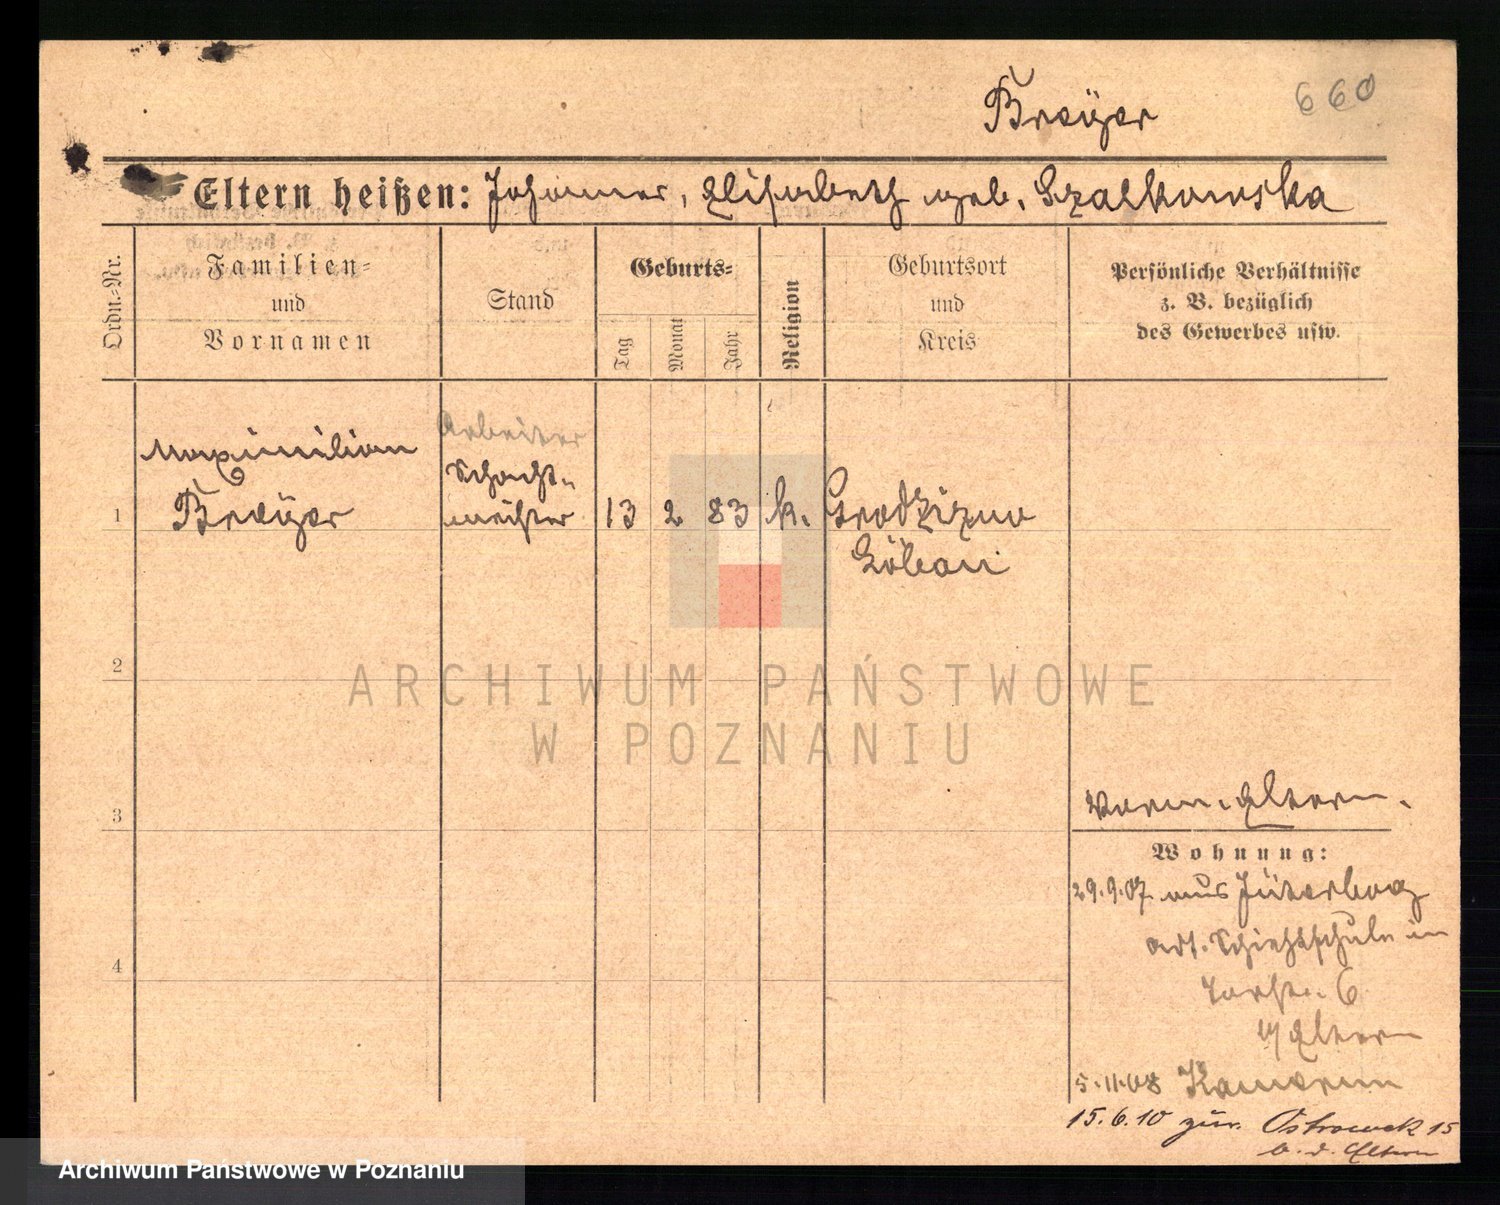 Breÿer
660
Eltern heißen: Johannes, Elisabeth geb. Szalkowska
Ordn.=Nr.
Familien=
und
Vornamen
Stand
Geburts=
Tag
Monat
Jahr
Religion
Geburtsort
und
Kreis
Persönliche Verhältnisse
z. B. bezüglich
des Gewerbes usw.
Arbeiter
Maximilian
Schacht-
1 Breÿer meister 13 2 83 k. Grodziczno
Löbau
2
ARCHIWUM PAŃSTWOWE
W POZNANIU
3
Verm. Eltern.
Wohnung:
29.9.07 aus Jüterbog
art. Schießschule in
4
6
b/ Eltern
5.11.08 Kamerun
15.6.10 zur. Ostrowek 15
b. d. Eltern
Archiwum Państwowe w Poznaniu